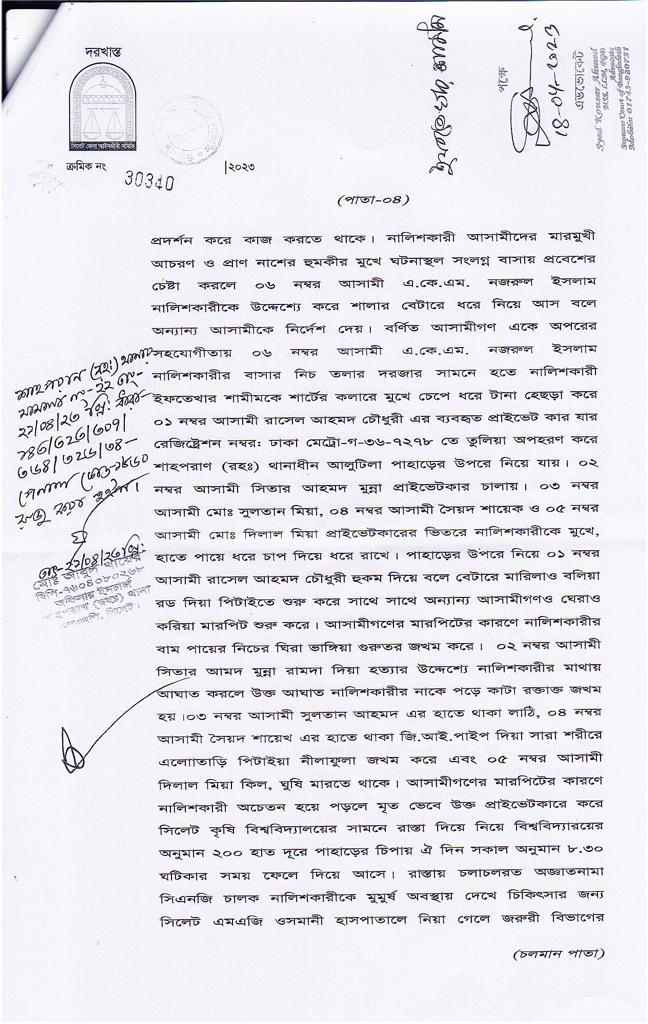 দরখাস্ত
সিলেট জেলা আইনজীবী সমিতি
ক্রমিক নং 30340 |২০২৩
পক্ষে
18-04-2023
এডভোকেট
Syed Kawsar Ahmed
Advocate
Supreme Court of Bangladesh
(পাতা-০৪)
প্রদর্শন করে কাজ করতে থাকে। নালিশকারী আসামীদের মারমুখী
আচরণ ও প্রাণ নাশের হুমকীর মুখে ঘটনাস্থল সংলগ্ন বাসায় প্রবেশের
চেষ্টা করলে ০৬ নম্বর আসামী এ.কে.এম. নজরুল ইসলাম
নালিশকারীকে উদ্দেশ্যে করে শালার বেটারে ধরে নিয়ে আস বলে
অন্যান্য আসামীকে নির্দেশ দেয়। বর্ণিত আসামীগণ একে অপরের
সহযোগীতায় ০৬ নম্বর আসামী এ.কে.এম. নজরুল ইসলাম
নালিশকারীর বাসার নিচ তলার দরজার সামনে হতে নালিশকারী
ইফতেখার শামীমকে শার্টের কলারে মুখে চেপে ধরে টানা হেছড়া করে
০১ নম্বর আসামী রাসেল আহমদ চৌধুরী এর ব্যবহৃত প্রাইভেট কার যার
রেজিষ্ট্রেশন নম্বর: ঢাকা মেট্রো-গ-৩৬-৭২৭৮ তে তুলিয়া অপহরণ করে
শাহপরাণ (রহঃ) থানাধীন আলুটিলা পাহাড়ের উপরে নিয়ে যায়। ০২
নম্বর আসামী সিতার আহমদ মুন্না প্রাইভেটকার চালায়। ০৩ নম্বর
আসামী মোঃ সুলতান মিয়া, ০৪ নম্বর আসামী সৈয়দ শায়েক ও ০৫ নম্বর
আসামী মোঃ দিলাল মিয়া প্রাইভেটকারের ভিতরে নালিশকারীকে মুখে,
হাতে পায়ে ধরে চাপ দিয়ে ধরে রাখে। পাহাড়ের উপরে নিয়ে ০১ নম্বর
আসামী রাসেল আহমদ চৌধুরী হুকম দিয়ে বলে বেটারে মারিলাও বলিয়া
রড দিয়া পিটাইতে শুরু করে সাথে সাথে অন্যান্য আসামীগণও ঘেরাও
করিয়া মারপিট শুরু করে। আসামীগণের মারপিটের কারণে নালিশকারীর
বাম পায়ের নিচের ঘিরা ভাঙ্গিয়া গুরুতর জখম করে। ০২ নম্বর আসামী
সিতার আমদ মুন্না রামদা দিয়া হত্যার উদ্দেশ্যে নালিশকারীর মাথায়
আঘাত করলে উক্ত আঘাত নালিশকারীর নাকে পড়ে কাটা রক্তাক্ত জখম
হয়।০৩ নম্বর আসামী সুলতান আহমদ এর হাতে থাকা লাঠি, ০৪ নম্বর
আসামী সৈয়দ শায়েখ এর হাতে থাকা জি.আই.পাইপ দিয়া সারা শরীরে
এলোাতাড়ি পিটাইয়া নীলাফুলা জখম করে এবং ০৫ নম্বর আসামী
দিলাল মিয়া কিল, ঘুষি মারতে থাকে। আসামীগণের মারপিটের কারণে
নালিশকারী অচেতন হয়ে পড়লে মৃত ভেবে উক্ত প্রাইভেটকারে করে
সিলেট কৃষি বিশ্ববিদ্যালয়ের সামনে রাস্তা দিয়ে নিয়ে বিশ্ববিদ্যারয়ের
অনুমান ২০০ হাত দূরে পাহাড়ের চিপায় ঐ দিন সকাল অনুমান ৮.৩০
ঘটিকার সময় ফেলে দিয়ে আসে। রাস্তায় চলাচলরত অজ্ঞাতনামা
সিএনজি চালক নালিশকারীকে মুমুর্ষ অবস্থায় দেখে চিকিৎসার জন্য
সিলেট এমএজি ওসমানী হাসপাতালে নিয়া গেলে জরুরী বিভাগের
(চলমান পাতা)